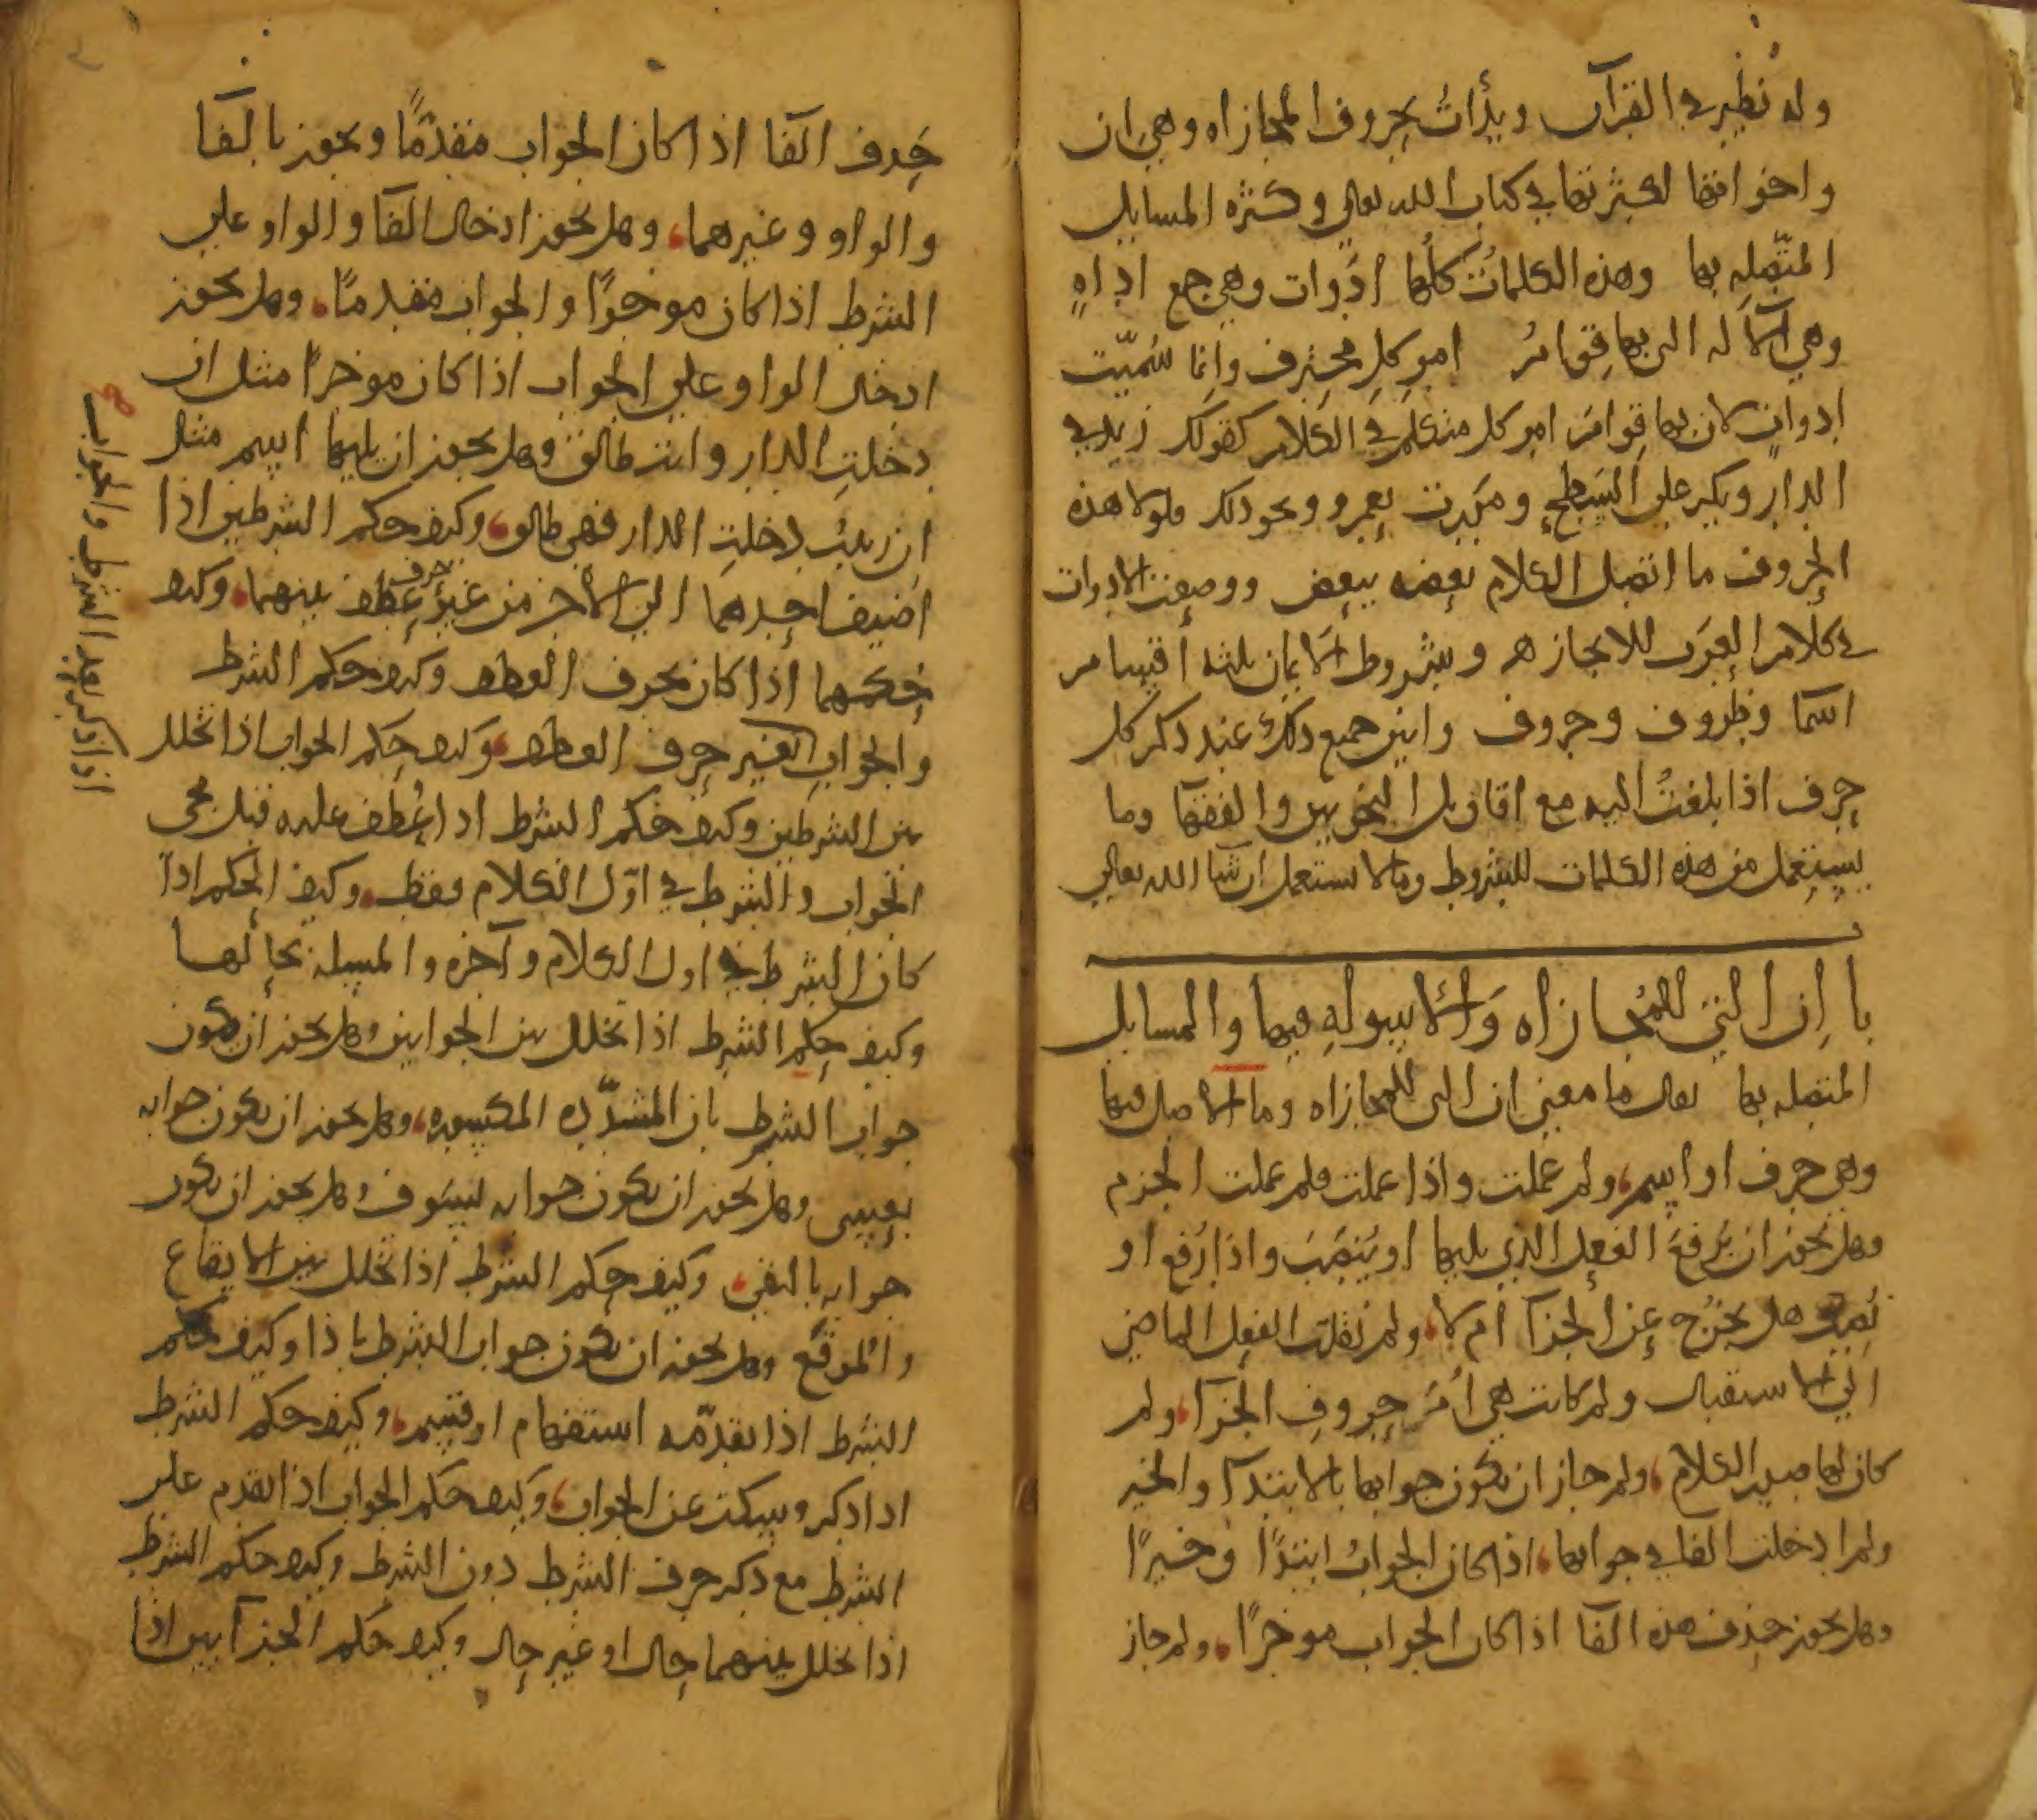 وله نظير في القرآن وبدأتُ بحروف المجازاه وهي ان
واخواتها لكثرتها في كتاب الله تعالى وكثره المسايل
المتّصله بها وهذه الكلمات كلُّها ادَوات وهي جمع اداهٍ
وهي الآله التي بها قِوامُ امر كل محترف وانما سُمّيت
ادوات لان بها قِوامَ امر كل متكلم في الكلام كقولك زيد في
الدار وبكر على السطح ومررت بعمرو ونحو ذلك ولولا هذه
الحروف ما اتصل الكلام بعضه ببعض ووضعت الادوات
في كلام العرب للايجاز هـ وشروط الايمان ثلثه اقسام
اسما وظروف وحروف وابين جميع ذلك عند ذكر كل
حرف اذا بلغتُ اليه مع اقاويل النحويين والفقها وما
يستعمل من هذه الكلمات للشروط وما لا يستعمل ان شا الله تعالى
با اِن التي للمُجازاه وَالأسوِلهِ فيها والمسايل
المتصله بها يقال ما معنى ان التي للمجازاه وما الاصل فيها
وهي حرف او اسم ولم عملت واذا عملت فلم عملت الجزم
وهل يجوز ان يُرفعَ الفعل الذي يليها او يُنصَبَ واذا رُفع او
نُصِبَ هل يخرُج عن الجزآ ام لا ولم نقلت الفعل الماضي
الى الاستقبال ولم كانت هي اُمَّ حروفِ الجزآ ولم
كان لها صدر الكلام ولم جاز ان يكون جوابها بالابتدآ والخبر
ولم ادخلت الفا في جوابها اذا كان الجوابُ ابتدًا وخبرًا
وهل يجوز حذف هذه الفآ اذا كان الجواب موخرًا ولم جاز
حَذف الفآ اذا كان الجواب متقدّمًا ويجوز بالفآ
والواو وغيرهما وهل يجوز ادخال الفآ والواو على
الشرط اذا كان موخرًا والجواب متقدمًا وهل يجوز
ادخال الواو على الجواب اذا كان موخرًا مثل ان
دخلتِ الدار وانت طالق وهل يجوز ان يليها اسم مثل
ان زينبُ دخلتِ الدار فهي طالق وكيف حكم الشرطين اذا
اضيف احدهما الى الآخر من غير حرف عطف بينهما وكيف
حُكمهما اذا كان بحرف العطف وكيف حكم الشرط
والجوابِ بغير حرف العطف وكيف حكم الجواب اذا تخلل
بين الشرطين وكيف حكم الشرط اذا عُطف عليه قبل مجى
الجواب والشرط في اوّل الكلام فقط وكيف الحكم اذا
كان الشرط في اول الكلام وآخره والمسله بحالها
وكيف حكم الشرط اذا تخلل بين الجوابين وهل يجوز ان يكون
جواب الشرط بان المشدّده المكسوره وهل يجوز ان يكون جوابه
بعسى وهل يجوز ان يكون جوابه لسَوف وهل يجوز ان يكون
جوابه بالنفي وكيف حكم الشرط اذا تخلل بين الايقاع
والموقَع وهل يجوز ان يكون جواب الشرط باذا وكيف حكم
الشرط اذا تقدّمه استفهام او قسم وكيف حكم الشرط
اذا ذكر وسكت عن الجواب وكيف حكم الجواب اذا تقدم على
الشرط مع ذكر حرف الشرط دون الشرط وكيف حكم الشرط
اذا تخلل بينهما حال او غير حال وكيف حكم الجزآيين اذا
اذا ذكر بعد الشرط والجواب